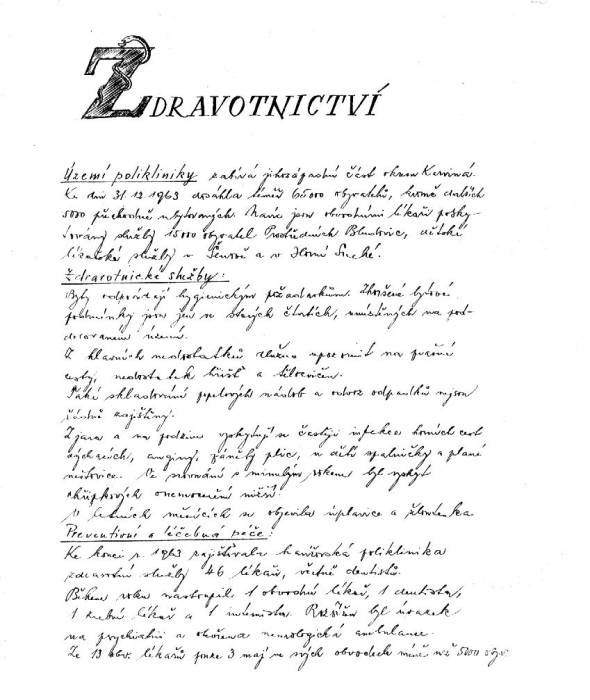 ZDRAVOTNICTVÍ
Území polikliniky zabírá jihozápadní část okresu Karviná.
Ke dni 31.12.1963 dosáhla téměř 65000 obyvatelů, kromě dalších
5000 přechodně ubytovaných. Navíc jsou obvodními lékaři posky-
továny služby 15000 obyvatel Prostředních Bludovic, dětské
lékařské služby v Šenově a v Horní Suché.
Zdravotnické služby:
Byty odpovídají hygienickým požadavkům. Zhoršené bytové
podmínky jsou jen ve starých čtvrtích, umístěných na pod-
dolovaném území.
Z hlavních nedostatků dlužno upozornit na prašné
cesty, nedostatek hřišť a tělocvičen.
Také skladování popelových nádob a odvoz odpadků nejsou
řádně zajištěny.
Z jara a na podzim vyskytují se častěji infekce horních cest
dýchacích, anginy, záněty plic, u dětí spalničky a plané
neštovice. Ve srovnání s minulým rokem byl výskyt
chřipkových onemocnění nižší.
V letních měsících se objevila úplavice a žloutenka
Preventivní a léčebná péče:
Ke konci r. 1963 zajišťovala havířovská poliklinika
zdravotní služby 46 lékařů, včetně dentistů.
Během roku nastoupil 1 obvodní lékař, 1 dentista,
1 zubní lékař a 1 internista. Rozšířen byl úvazek
na psychiatrii a otevřena neurologická ambulance.
Ze 13 obv. lékařů pouze 3 mají ve svých obvodech méně než 5000 obyv.